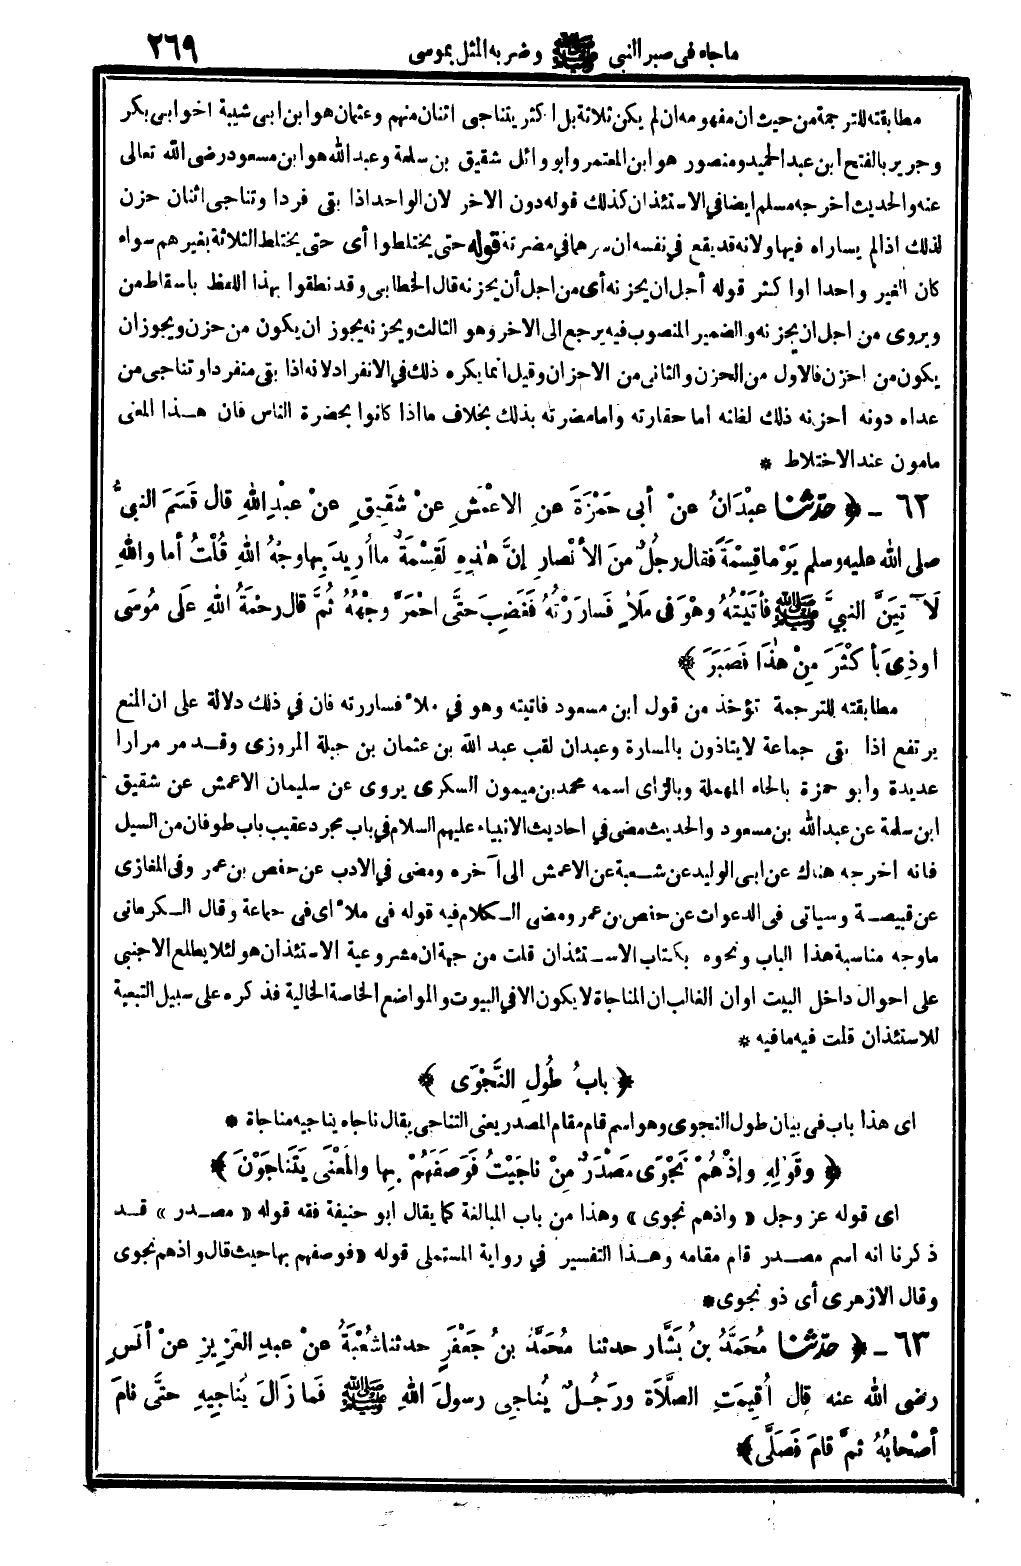 ماجاء في صبر النبي ﷺ وضربه المثل بموسى ٢٦٩
مطابقته للترجمة من حيث ان مفهومه ان لم يكن ثلاثة بل اكثر يتناجى اثنان منهم وعثمان هو ابن ابي شيبة اخو ابي بكر
وجرير بالفتح ابن عبد الحميد ومنصور هو ابن المعتمر وابو وائل شقيق بن سلمة وعبد الله هو ابن مسعود رضى الله تعالى
عنه والحديث اخرجه مسلم ايضا في الاستئذان كذلك قوله دون الاخر لان الواحد اذا بقى فردا وتناجى اثنان حزن
لذلك اذالم يساراه فيها ولانه قد يقع في نفسه ان سرهما في مضرته قوله حتى يختلطوا أى حتى يختلط الثلاثة بغيرهم سواء
كان الغير واحدا او اكثر قوله أجل ان يحزنه أى من اجل أن يحزنه قال الخطابي وقد نطقوا بهذا اللفظ باسقاط من
ويروى من اجل ان يحزنه والضمير المنصوب فيه يرجع الى الاخر وهو الثالث ويحزنه يجوز ان يكون من حزن ويجوز ان
يكون من احزن فالاول من الحزن والثانى من الاحزان وقيل انما يكره ذلك في الانفراد لانه اذا بقى منفردا وتناجى من
عداه دونه أحزنه ذلك لظنه اما حقارته واما مضرته بذلك بخلاف ما اذا كانوا بحضرة الناس فان هـذا المعنى
مامون عند الاختلاط *
٦٢ ـ ﴿ حدّثنا عبْدَانُ عنْ أبى حَمْزَةَ عنِ الاعْمَشِ عنْ شَقِيقٍ عنْ عبْدِ اللهِ قال قَسَمَ النبيُّ
صلى الله عليه وسلم يَوْماً قِسْمَةً فقال رجُلٌ منَ الأنْصارِ إنَّ هٰذِهِ لَقِسْمَةٌ ما اُرِيدَ بِها وجْهُ اللهِ قُلْتُ أما واللهِ
لَآتِيَنَّ النبيَّ ﷺ فأتَيْتُهُ وهْوَ فى مَلَأٍ فَسارَرْتُهُ فَغَضِبَ حتَّى احْمَرَّ وجْهُهُ ثُمَّ قال رحْمَةُ اللهِ علَى مُوسَى
اوذِىَ بأكْثَرَ مِنْ هٰذَا فَصَبَرَ ﴾
مطابقته للترجمة تؤخذ من قول ابن مسعود فاتيته وهو في ملأ فساررته فان في ذلك دلالة على ان المنع
يرتفع اذا بقى جماعة لا يتاذون بالمسارة وعبدان لقب عبد الله بن عثمان بن جبلة المروزى وقـد مر مرارا
عديدة وأبو حمزة بالحاء المهملة وبالزاى اسمه محمد بن ميمون السكرى يروى عن سليمان الاعمش عن شقيق
ابن سلمة عن عبد الله بن مسعود والحديث مضى في احاديث الانبياء عليهم السلام في باب مجرد عقيب باب طوفان من السيل
فانه اخرجه هناك عن ابى الوليد عن شـعبة عن الاعمش الى آخره ومضى في الادب عن حفص بن عمر وفى المغازى
عن قبيصـة وسياتى فى الدعوات عن حفص بن عمر ومضى الـكلام فيه قوله فى ملأ اى فى جماعة وقال الـكرمانى
ما وجه مناسبة هذا الباب ونحوه بكتاب الاسـتئذان قلت من جهة ان مشروعية الاستئذان هو لئلا يطلع الاجنبى
على احوال داخل البيت او ان الغالب ان المناجاة لا يكون الا في البيوت والمواضع الخاصة الخالية فذكره على سبيل التبعية
للاستئذان قلت فيه مافيه *
﴿ بابُ طُولِ النَّجْوَى ﴾
اى هذا باب فى بيان طول النجوى وهو اسم قام مقام المصدر يعنى التناجى يقال ناجاه يناجيه مناجاة *
﴿ وقَوْلِهِ وإذْ هُمْ نَجْوَى مَصْدَرٌ مِنْ ناجَيْتُ فَوَصَفَهُمْ بِها والمَعْنَى يَتَناجَوْنَ ﴾
اى قوله عز وجل « واذ هم نجوى » وهذا من باب المبالغة كما يقال ابو حنيفة فقه قوله « مصـدر » قـد
ذكرنا انه اسم مصـدر قام مقامه وهـذا التفسير في رواية المستملى قوله «فوصفهم بها حيث قال واذ هم نجوى
وقال الازهرى أى ذو نجوى*
٦٣ ـ ﴿ حدّثنا مُحَمَّدُ بنُ بَشَّار حدثنا مُحَمَّدُ بنُ جَعْفَرٍ حدثنا شُعْبَةُ عنْ عبدِ العَزِيزِ عنْ أنَسٍ
رضى الله عنه قال اُقِيمَتِ الصَّلاَة ورَجُـلٌ يُناجِى رسولَ اللهِ ﷺ فَما زَالَ يُناجِيهِ حتَّى نامَ
أصْحابُهُ ثمَّ قامَ فَصَلَّى﴾